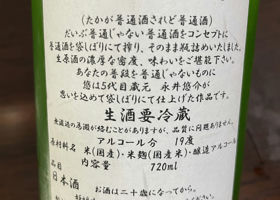 (たかが普通酒されど普通酒)
だいぶ普通じゃない普通酒をコンセプトに
普通酒を袋しぼりにて搾り、そのまま瓶詰めいたしました。
生原酒の濃厚な密度、味わいをご堪能下さい。
あなたの普段を普通じゃないものに
悠は5代目蔵元 永井悠介が
思いを込めて袋しぼりにて仕上げた作品です。
生酒要冷蔵
無濾過の為澱が絡むことがありますが、品質に問題ありません。
アルコール分 19度
原材料名 米(国産)・米麹(国産米)・醸造アルコール
内容量 720ml
品目
日本酒
お酒は二十歳になってから。